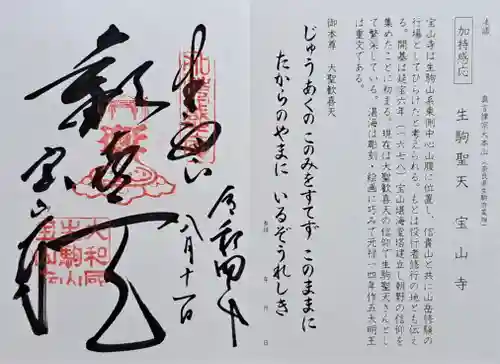 加持感応
真言律宗大本山(奈良県生駒市門前町)
生駒聖天 宝山寺
宝山寺は生駒山系東側中心山腹に位置し、信貴山と共に山岳修験の
行場としてひらけたと考えられる。もとは役行者修行の地とも伝え
る。開基は延宝六年(一六七八)宝山湛海堂塔建立し朝野の信仰を
集めたことに初まる。現在は大聖歓喜天の信仰で生駒聖天さんとし
て繁栄している。湛海は彫刻・絵画に巧みで元禄一四年作五大明王
は重文である。
御本尊 大聖歓喜天
じゅうあくの このみをすてず このままに
たからのやまに いるぞうれしき
年 月 日
令和四年
八月十一日
生駒山
歓喜天
宝山寺
大和国
生駒山
宝山寺